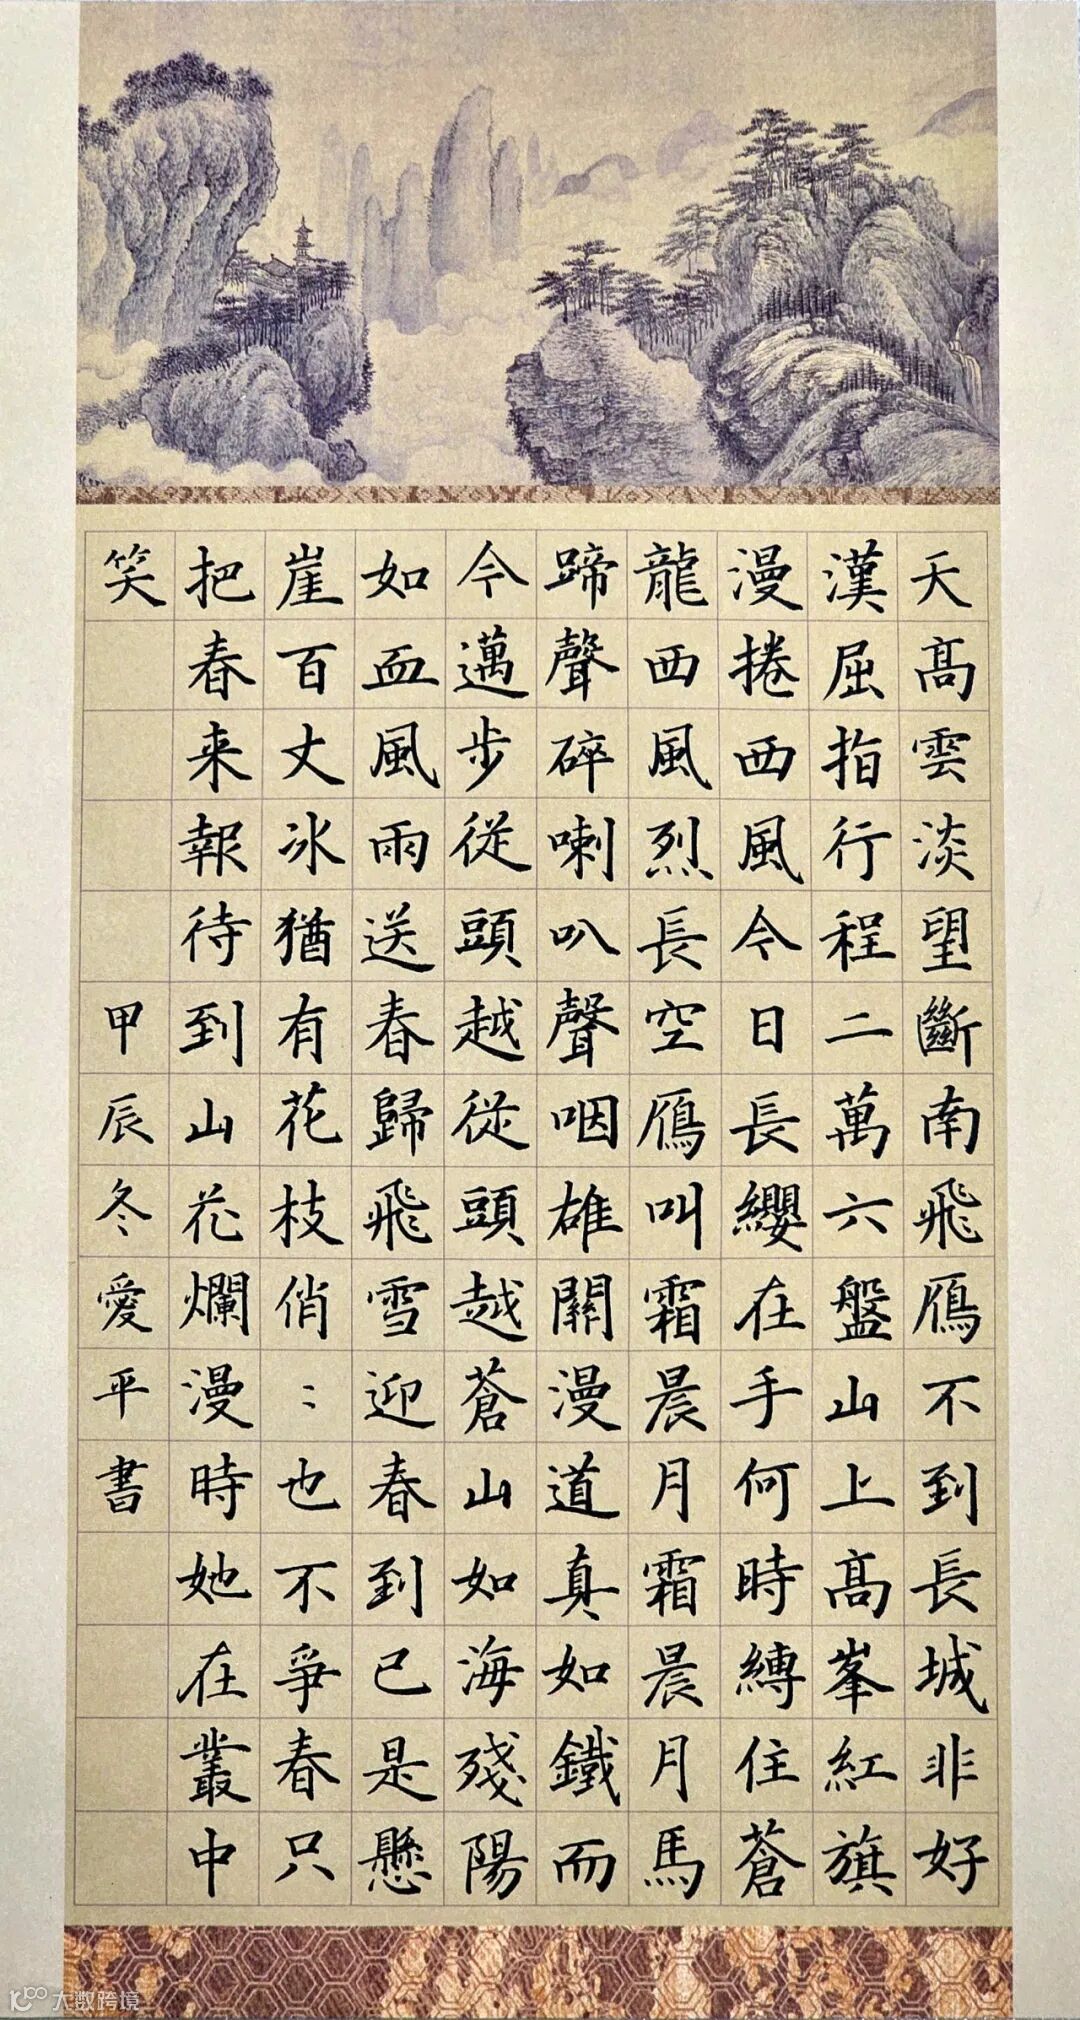 天高雲淡望斷南飛鴈不到長城非好
漢屈指行程二萬六盤山上高峯紅旗
漫捲西風今日長纓在手何時縛住蒼
龍西風烈長空鴈叫霜晨月霜晨月馬
蹄聲碎喇叭聲咽雄關漫道真如鐵而
今邁步從頭越從頭越蒼山如海殘陽
如血風雨送春歸飛雪迎春到已是懸
崖百丈冰猶有花枝俏：也不爭春只
把春来報待到山花爛漫時她在叢中
笑
甲辰冬愛平書
大数跨境